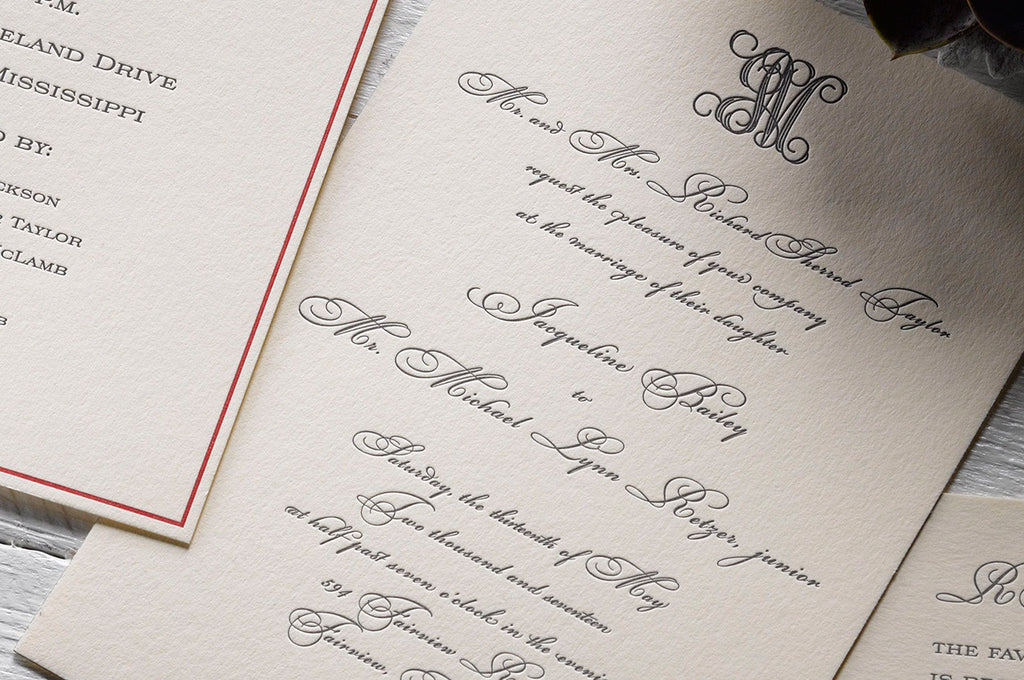 P.M.
ELAND DRIVE
MISSISSIPPI
D BY:
CKSON
TAYLOR
CLAMB
B
Mr. and Mrs. Richard Sherrod Taylor
request the pleasure of your company
at the marriage of their daughter
Jacqueline Bailey
to
Mr. Michael Lynn Retzer, junior
Saturday, the thirteenth of May
Two thousand and seventeen
at half past seven o'clock in the eveni
594 Fairview R
Fairview,
R
THE FAV